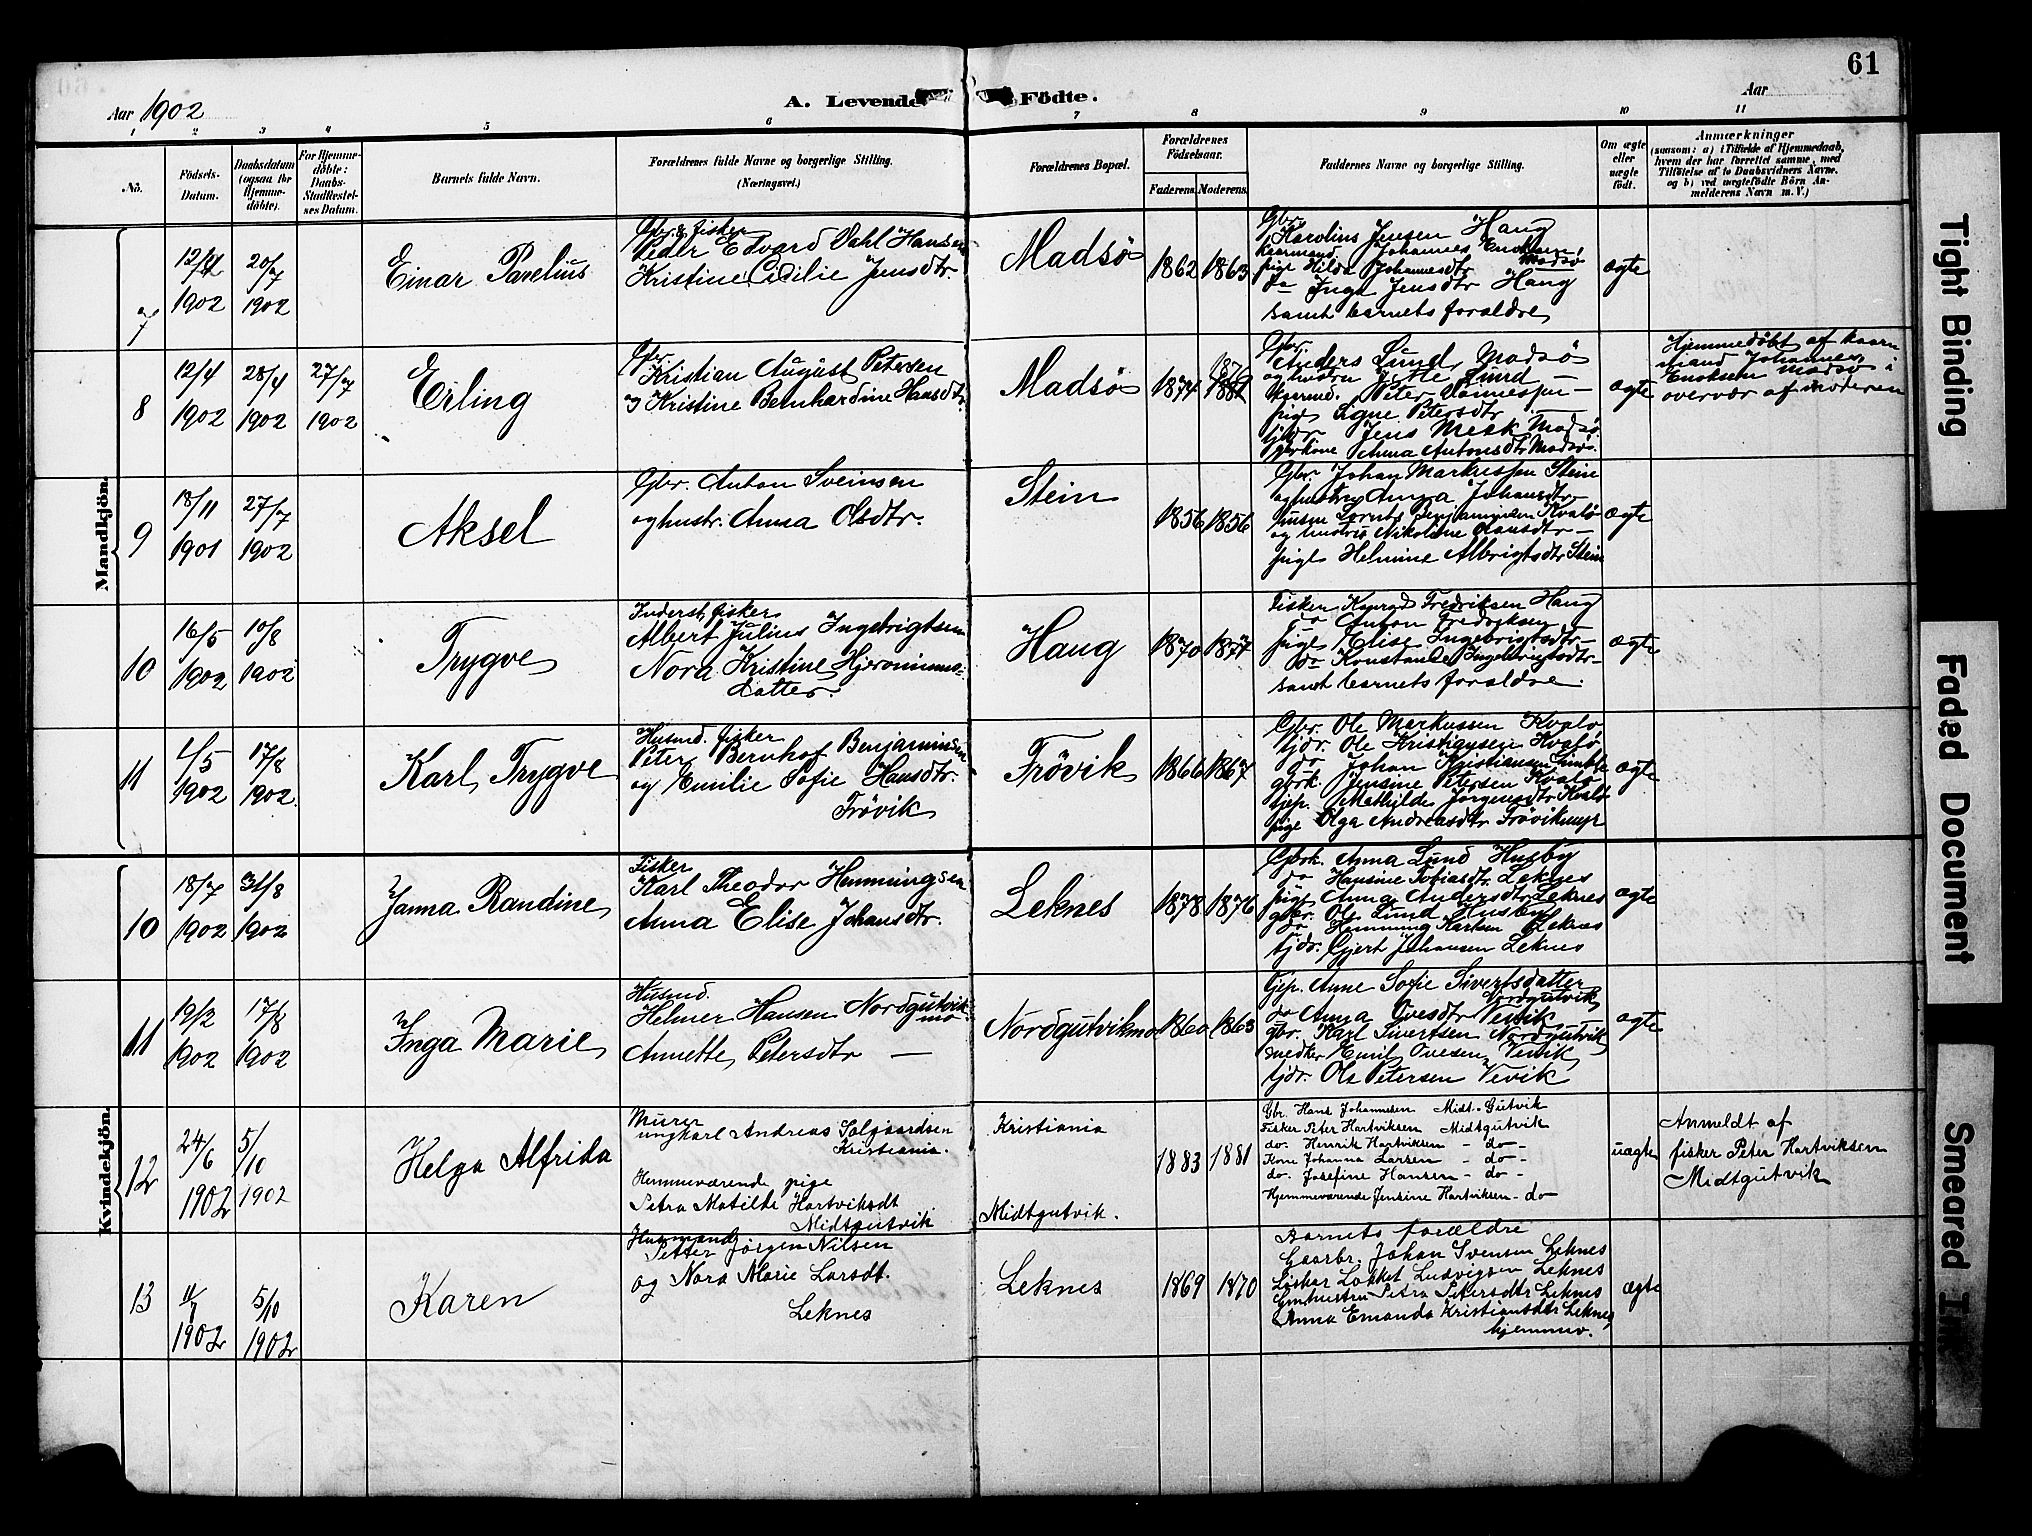 61
Aar 1902
A. Levende Födte.
Aar
1 2 3 4 5 6 7 8 9 10 11
No.
Födsels-Datum.
Daabsdatum (ogsaa for Hjemme-döbte).
For Hjemme-döbte: Daabs-Stadfæstel-ses Datum.
Barnets fulde Navn.
Forældrenes fulde Navne og borgerlige Stilling.
(Næringsvei.)
Forældrenes Bopæl.
Forældrenes Födselsaar.
Faderens. Moderens.
Faddernes Navne og borgerlige Stilling.
Om ægte eller uægte födt.
Anmærkninger
(saasom: a) i Tilfælde af Hjemmedaab,
hvem der har forrettet samme, med
Tilföielse af to Daabsvidners Navne,
og b) ved uægtefödte Börn An-
melderens Navn m. V.)
Mandkjön.
7
12/4 1902
20/7 1902
Einar Pavelius
Gbr. & fisker
Peder Edvard Dahl Hansen
Kristine Cecilie Jensdtr.
Madsö
1862 1863
Gbr.
Karolius Jensen Haug
Kaarmand Johannes Enoksen Madsö
pige Hilda Johannesdtr
do Inga Jensdtr Haug
samt barnets foraldre
ægte
8
12/4 1902
28/4 1902
27/7 1902
Erling
Gbr.
Kristian August Petersen
og Kristine Bernhardine Hansdtr.
Madsö
1874
Gbr.
Anders Lund Madsö
og hustru Jette Lund
Peter Hannessen —
pige Agne Petersdtr —
tjdr Jens Mesk Madsö
gbrkone Anna Antonsdtr Madsö.
ægte
Hjemmedöbt af kaarmand Johannes
Enoksen Madsö i
overvær af moderen
9
18/11 1901
27/7 1902
Aksel
Gbr. Anton Sveinsen
og hustr. Anna Olsdtr.
Stein
1856 1856
Gbr. Johan Markussen Stein
og hustru Anna Johansdtr
Lornts Benjaminsen Kvalö
og hustru Nikoline Hansdtr —
pige Helmine Albrigtsdtr Stein
ægte
10
16/5 1902
10/8 1902
Trygve
Inderst, fisker
Albert Julius Ingebrigtsen
Nora Kristine Hjeronimus-
datter.
Haug
1870 1877
Fisker Konrad Fredriksen Haug
do Anton Fredriksen
pige Elise Ingebrigtsdtr —
do Konstanse Ingebrigtsdtr —
samt barnets foraldre.
ægte
11
1/5 1902
17/8 1902
Karl Trygve
Husmd. fisker
Peter Bernhof Benjaminsen
og Emilie Sofie Hansdtr.
Trövik
Trövik
1866 1867
Gbr. Ole Markussen Kvalö
tjdr. Ole Kristiansen Kvalö
do Johan Kristiansen
gbrk. Jensine Petersen Kvalö
tjp. Mathilde Jörgensdtr Kvalö
pige Olga Andreasdtr Trövikmyr
ægte
Kvindekjön.
10
18/7 1902
31/8 1902
Janna Randine
Fisker
Karl Theodor Hemmingsen
Anna Elise Johansdtr.
Leknes
1878 1876
Gbrk. Anna Lund Husby
do Hansine Tobiasdtr. Leknes
pige Anna Andersdtr Leknes
gbr. Ole Lund Husby
do Hemming Karlsen Leknes
tjdr. Gjert Johansen Leknes
ægte
11
19/2 1902
17/8 1902
Inga Marie
Husmd.
Helmer Hansen Nordgutvik-
mo
Annette Petersdtr —
Nordgutvikmo
1860 1863
Tjp. Anne Sofie Sivertsdatter
Nordgutvik
do Anna Ovesdtr Vevik
gbr. Karl Sivertsen Nordgutvik
snedker Emil Ovesen Vevik
tjdr. Ole Petersen Vevik
ægte
12
24/6 1902
5/10 1902
Helga Alfrida
Murer
ungkarl Andreas Salgaardsen
Kristiania.
Hemmeværende pige
Petra Matilde Hartviksdt
Midtgutvik
Kristiania
Midtgutvik.
1883 1881
Gbr. Hans Johannesen Midt-Gutvik
Fisker Peter Hartviksen Midtgutvik
do. Henrik Hartviksen - do -
Kone Johanna Larsen - do -
do. Josefine Hansen - do -
Hjemmeværende Jensine Hartviksen - do
uægte
Anmeldt af
fisker Peter Hartviksen
Midtgutvik
13
11/7 1902
5/10 1902
Karen
Husmand
Petter Jörgen Nilsen
og Nora Marie Larsdt.
Leknes
Leknes
1869 1870
Barnets forældre
Gaarbr. Johan Svensen Leknes
Lokket Ludvigsen Leknes
Gmhustru Petra Petersdtr Leknes
Anna Emanda Kristiansdtr Leknes
hjemmev.
ægte
Tight Binding
Faded Document
Smeared Ink